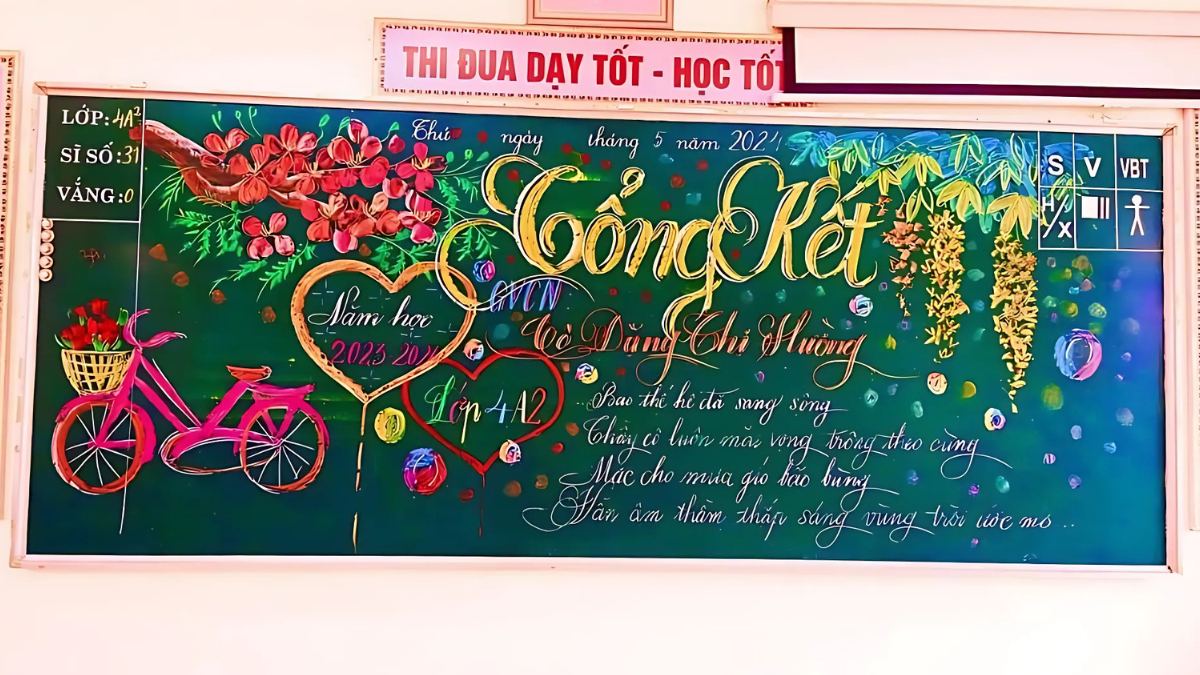 THI ĐUA DẠY TỐT - HỌC TỐT
LỚP: 4A2
SĨ SỐ: 31
VẮNG: 0
Thứ ngày tháng 5 năm 2024
Tổng Kết
S V VBT
H/X
Năm học
2023 2024
GVCN
Cô Đặng Thị Hường
Lớp 4A2
Bao thế hệ đã sang sông
Thầy cô luôn mãi vọng trông theo cùng
Mặc cho mưa gió bão bùng
Vẫn âm thầm thắp sáng vùng trời ước mơ...